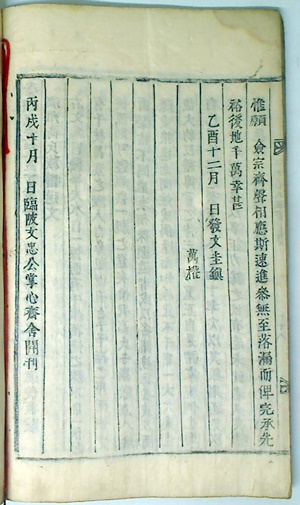 惟願 僉宗齊聲相應斯速進參無至落漏而俾完承先
裕後地千萬幸甚
乙酉十二月 日發文圭鎭
萬
丙戌十月 日臨陂文忠公掌心齊舍開刊